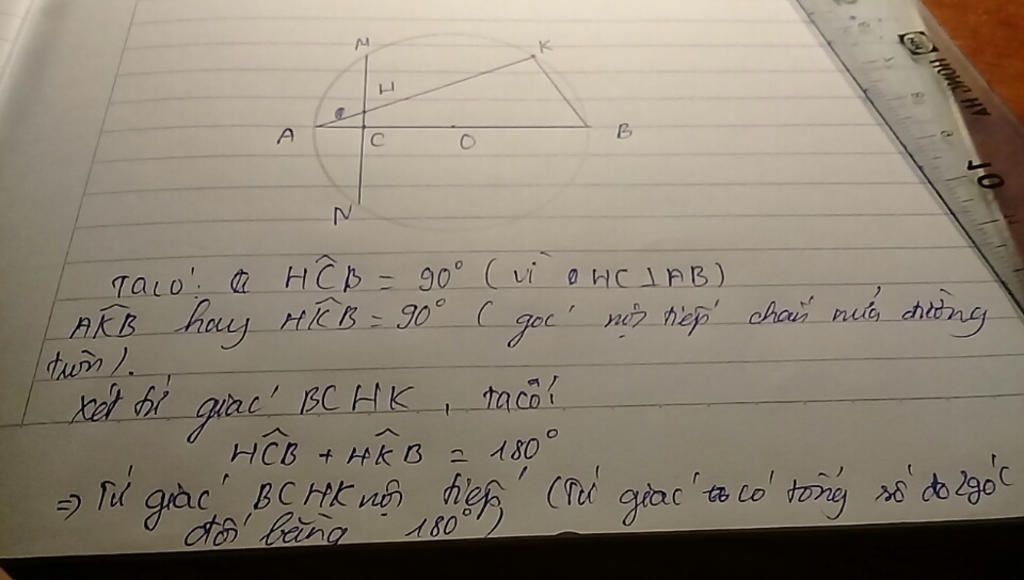 M
K
H
A
C
O
B
N
HONG HA
10
Ta có: HĈB = 90° (vì HC⊥AB)
AK̂B hay HK̂B = 90° (góc nội tiếp chắn nửa đường
tròn).
Xét tứ giác BCHK, ta có:
HĈB + HK̂B = 180°
⇒ Tứ giác BCHK nội tiếp (Tứ giác có tổng số đo 2 góc
đối bằng 180°)